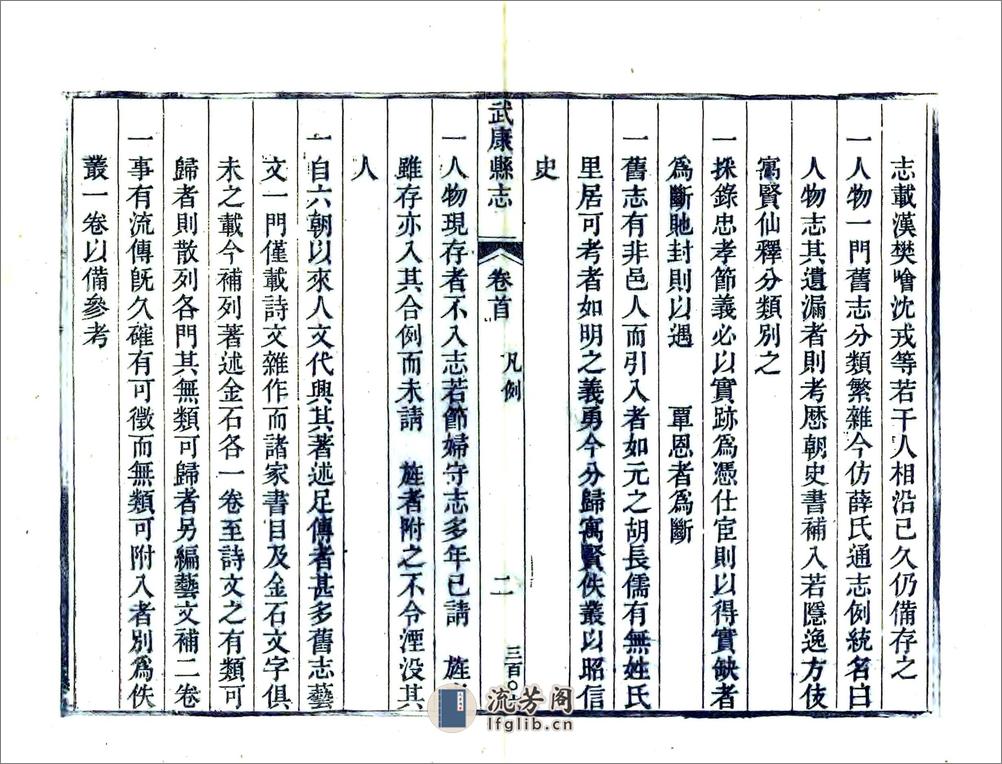 志載漢樊噲沈戎等若干人相沿已久仍備存之
一人物一門舊志分類繁雜今仿薛氏通志例統名曰
人物志其遺漏者則考歷朝史書補入若隱逸方伎
寓賢仙釋分類別之
一採錄忠孝節義必以實跡為憑仕宦則以得實缺者
為斷貤封則以遇 覃恩者為斷
一舊志有非邑人而引入者如元之胡長儒有無姓氏
里居可考者如明之義勇今分歸寓賢佚叢以昭信
史
武康縣志 卷首 凡例 二 三百〇
一人物現存者不入志若節婦守志多年已請 旌
雖存亦入其合例而未請 旌者附之不令湮没其
人
一自六朝以來人文代興其著述足傳者甚多舊志藝
文一門僅載詩文雜作而諸家書目及金石文字俱
未之載今補列著述金石各一卷至詩文之有類可
歸者則散列各門其無類可歸者另編藝文補二卷
一事有流傳旣久確有可徵而無類可附入者別為佚
叢一卷以備參考
流芳阁
lfglib.cn